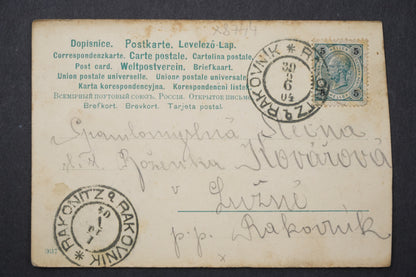 Dopisnice. Postkarte. Levelező-Lap.
Correspondenzkarte. Carte postale. Cartolina postale.
Post card. Weltpostverein. Briefkaart.
Union postale universelle. Unione postale universale.
Karta korespondencyjna. Korespondencni listek.
Всемірный почтовый союзъ. Россія. Открытое письмо.
Brefkort. Brevkort. Tarjeta postal.
RAKONITZ a RAKOVNÍK
5 5
5 5
Slečna
Boženka Kovářová
v Lužné
p.p. Rakovník
RAKONITZ a RAKOVNIK